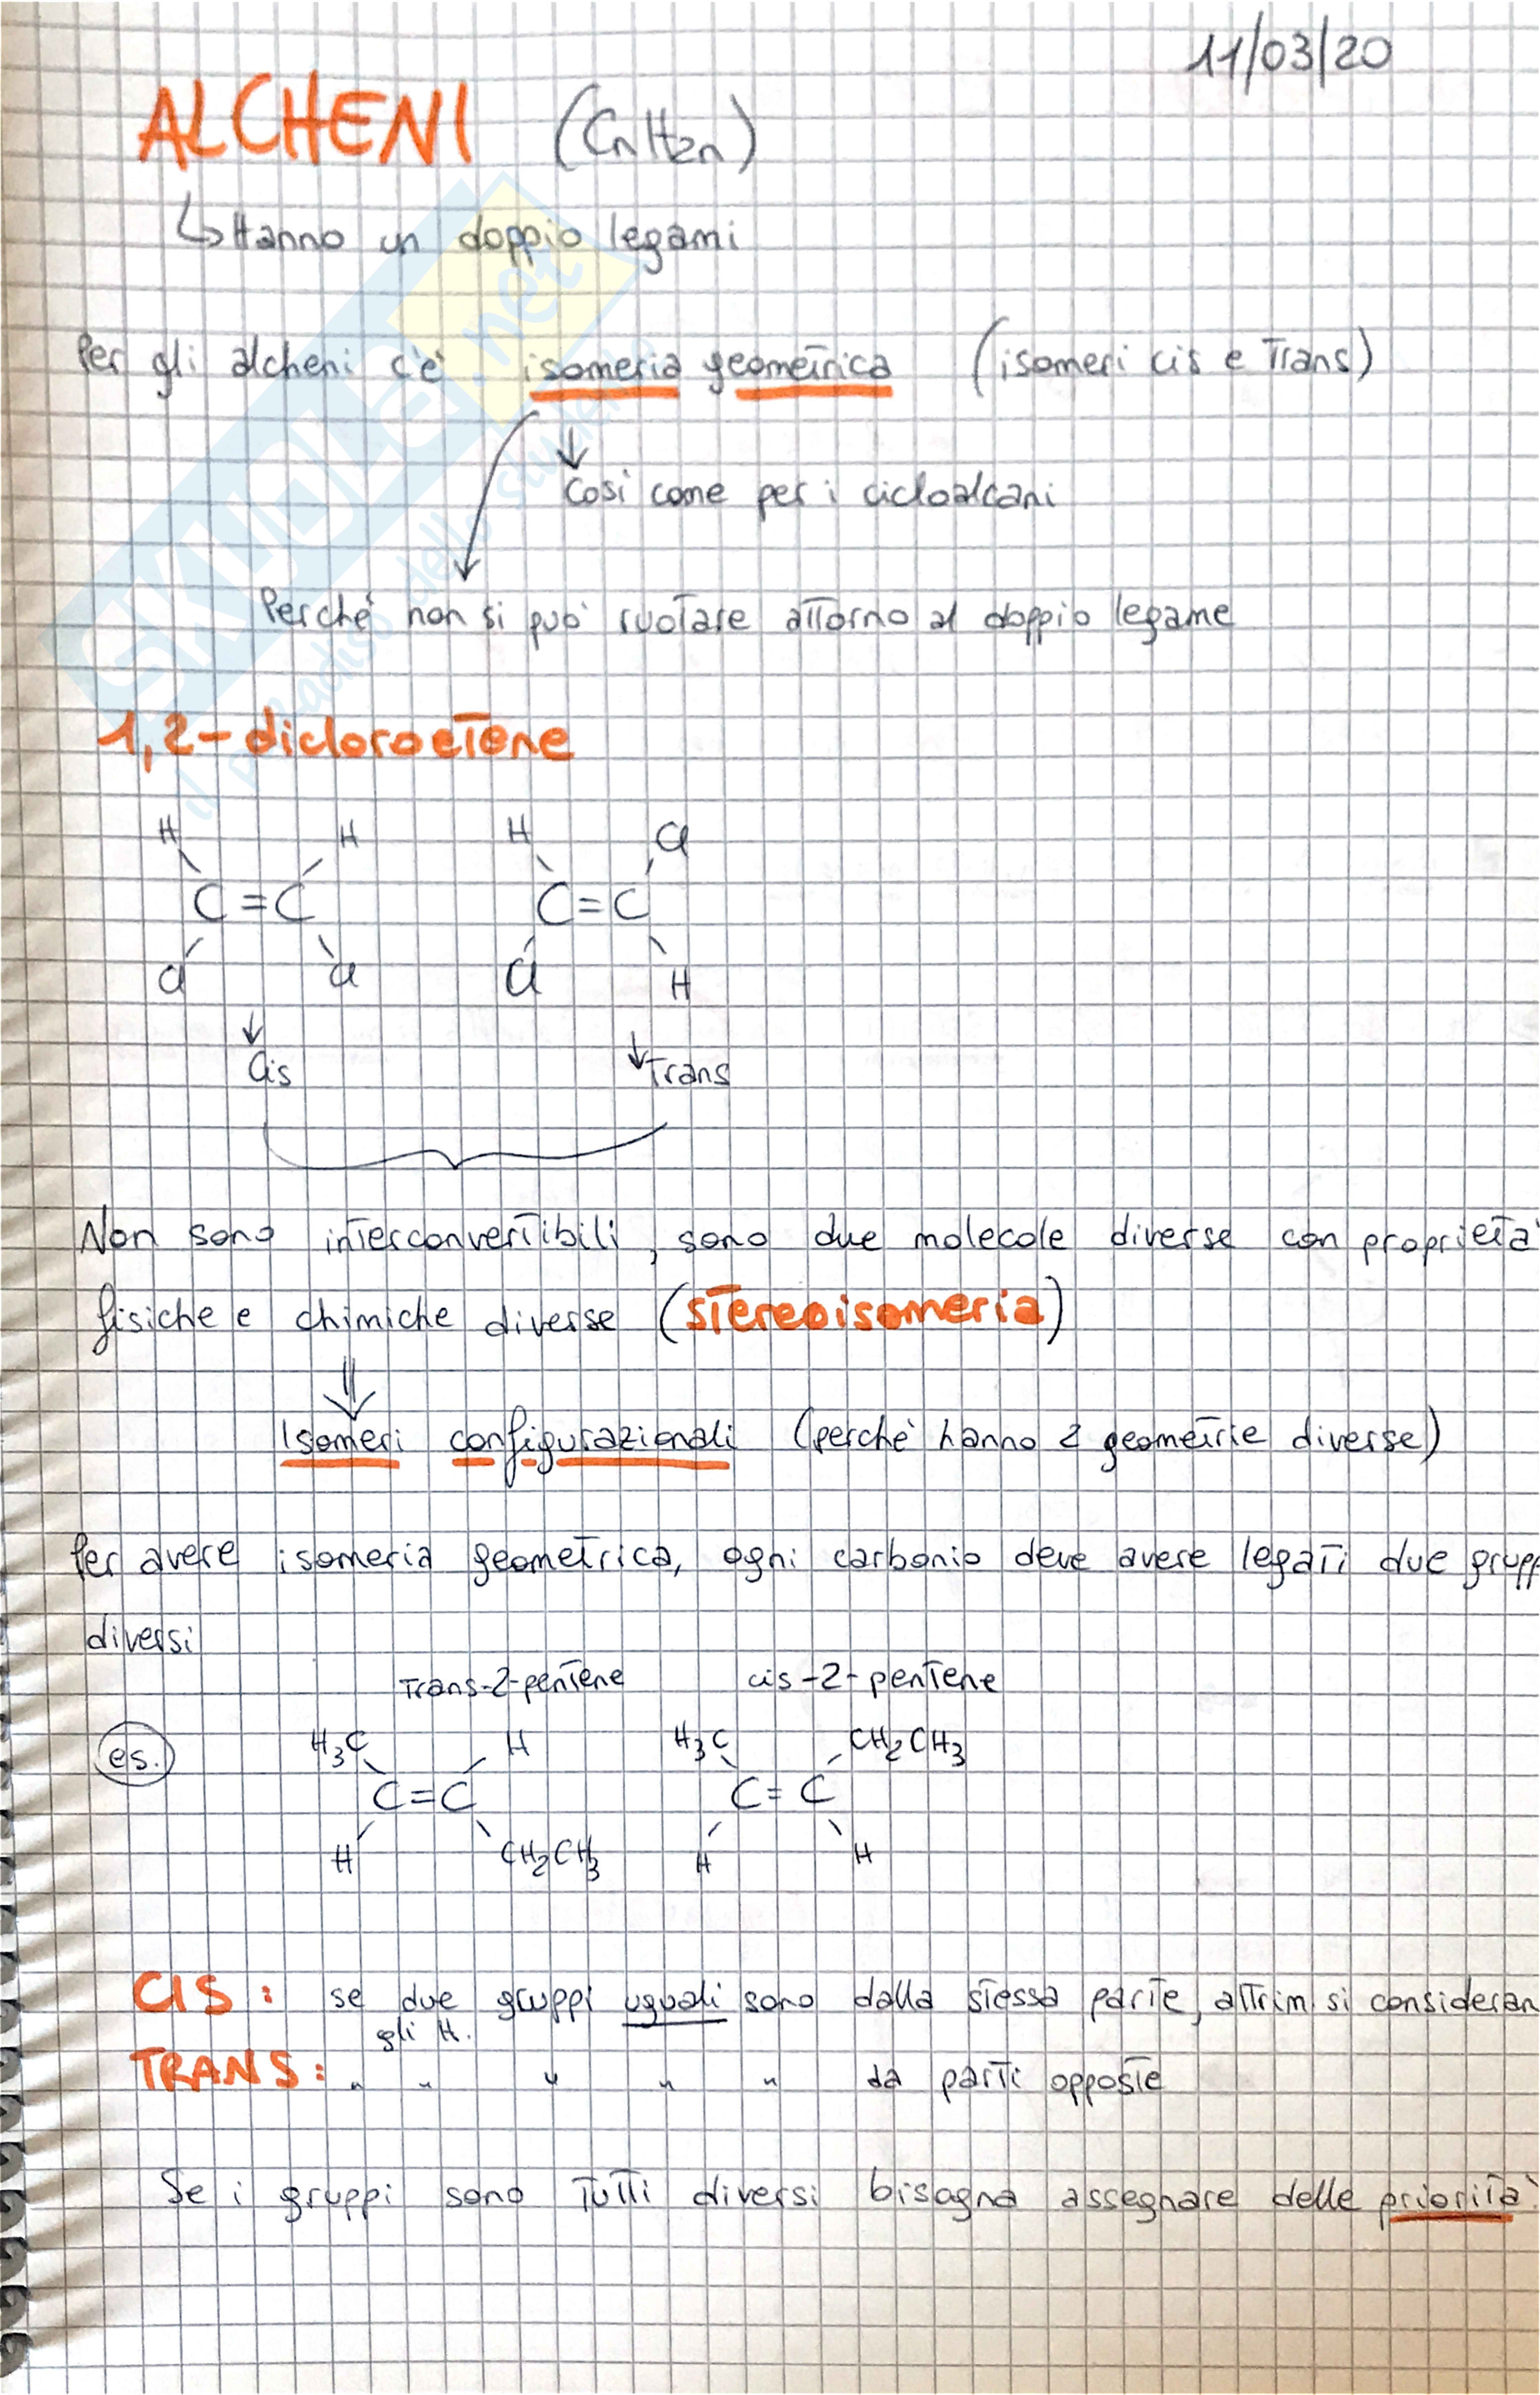 11/03/20
ALCHENI (CnH2n)
↳ Hanno un doppio legami
Per gli alcheni c'è isomeria geometrica (isomeri cis e Trans)
↓
Così come per i cicloalcani
Perché non si può ruotare attorno al doppio legame
1,2-dicloroetene
H H H Cl
C=C C=C
Cl Cl Cl H
↓ ↓
Cis Trans
Non sono interconvertibili, sono due molecole diverse con proprietà
fisiche e chimiche diverse (stereoisomeria)
⇓
Isomeri configurazionali (perchè hanno 2 geometrie diverse)
Per avere isomeria geometrica, ogni carbonio deve avere legati due grupp
diversi
Trans-2-pentene cis-2-pentene
es. H3C H H3C CH2CH3
C=C C=C
H CH2CH3 H H
CIS: se due gruppi uguali sono dalla stessa parte, altrim. si consideran
gli H.
TRANS: " " " " " da parti opposte
Se i gruppi sono tutti diversi bisogna assegnare delle priorità
SKUOLA.net
il paradiso dello studente